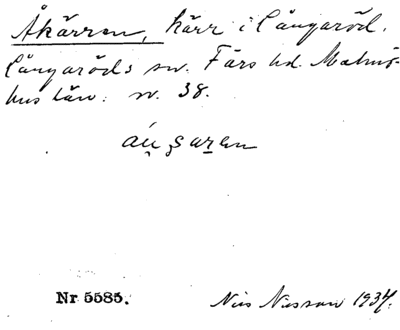 Åkärren, kärr i Långaröd.
Långaröds sn. Färs hd. Malmö-
hus län. nr. 38.
Nr 5585.
Nils Nilsson 1934.